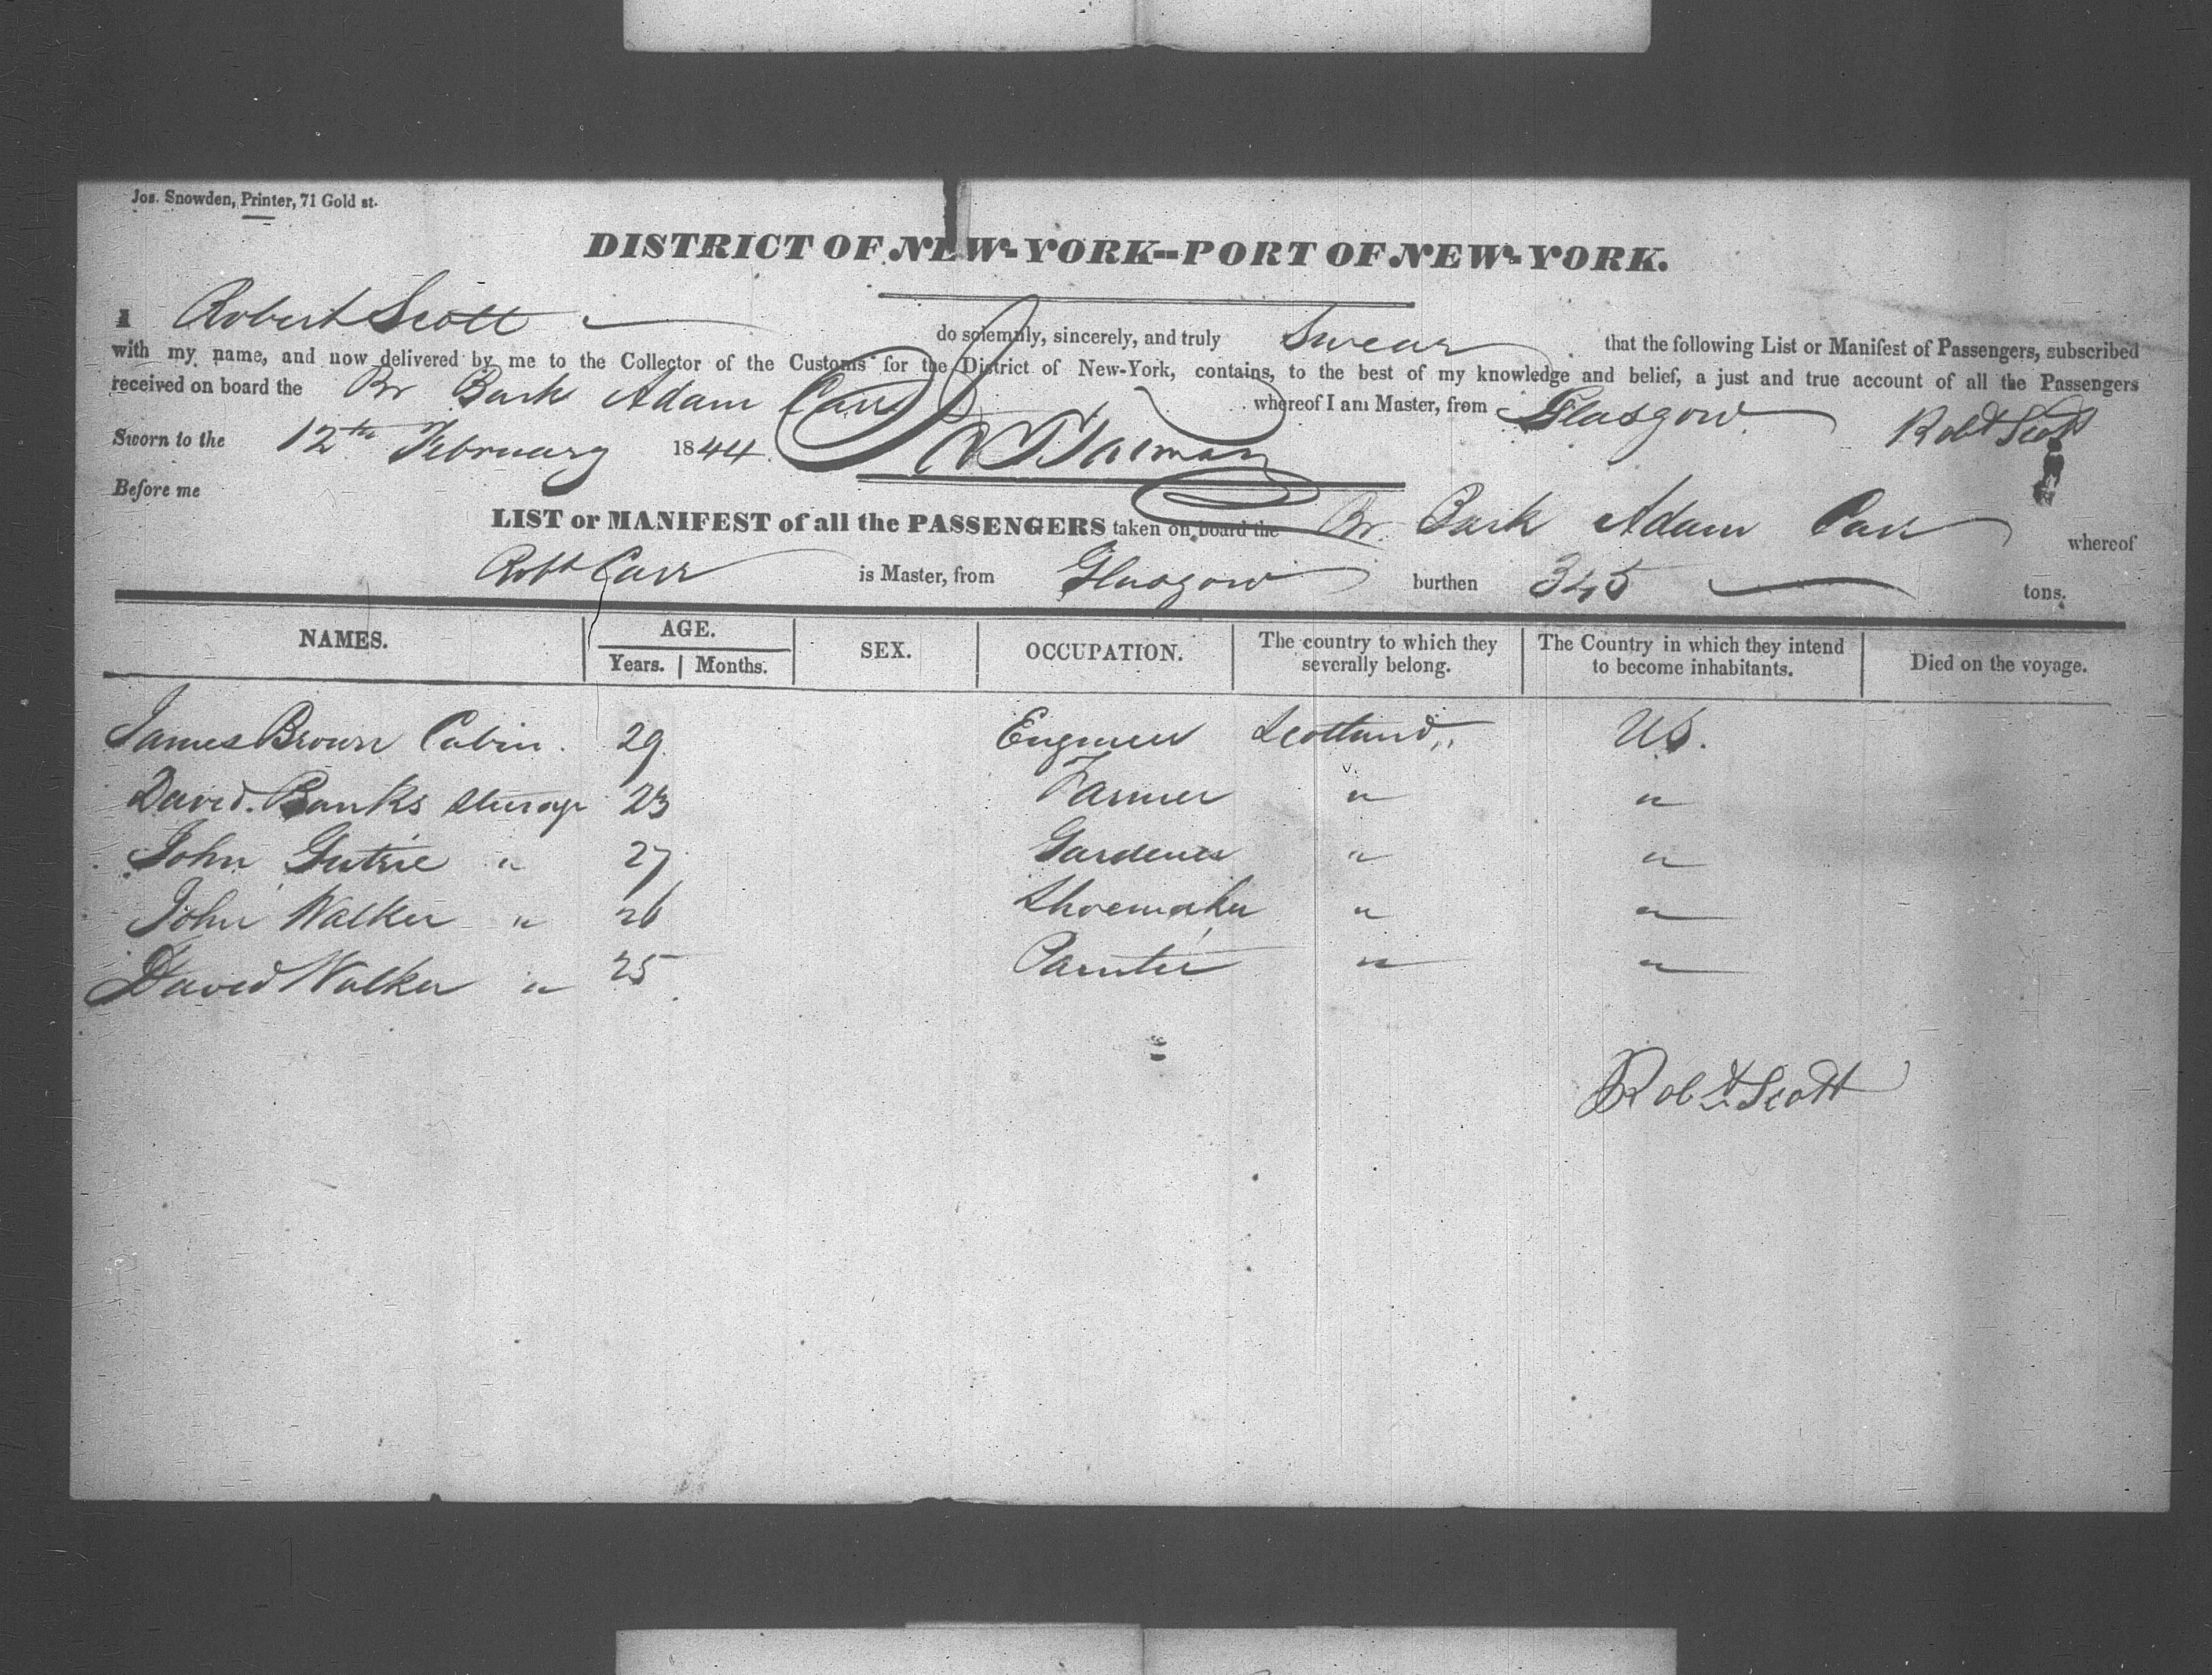 Jos. Snowden, Printer, 71 Gold st.
DISTRICT OF NEW-YORK--PORT OF NEW-YORK.
I Robert Scott do solemnly, sincerely, and truly Swear that the following List or Manifest of Passengers, subscribed
with my name, and now delivered by me to the Collector of the Customs for the District of New-York, contains, to the best of my knowledge and belief, a just and true account of all the Passengers
received on board the Br Bark Adam Carr whereof I am Master, from Glasgow
Robt Scott
Sworn to the 12th February 1844.
Before me
LIST or MANIFEST of all the PASSENGERS taken on board the Br. Bark Adam Carr whereof
Robt Carr is Master, from Glasgow burthen 345 tons.
NAMES. AGE. SEX. OCCUPATION. The country to which they severally belong. The Country in which they intend to become inhabitants. Died on the voyage.
Years. Months.
James Brown Cabin. 29 Engineer Scotland US.
David Banks Steerage 23 Farmer " "
John Gutrie " 27 Gardener " "
John Walker " 26 Shoemaker " "
David Walker " 25 Painter " "
Robt Scott